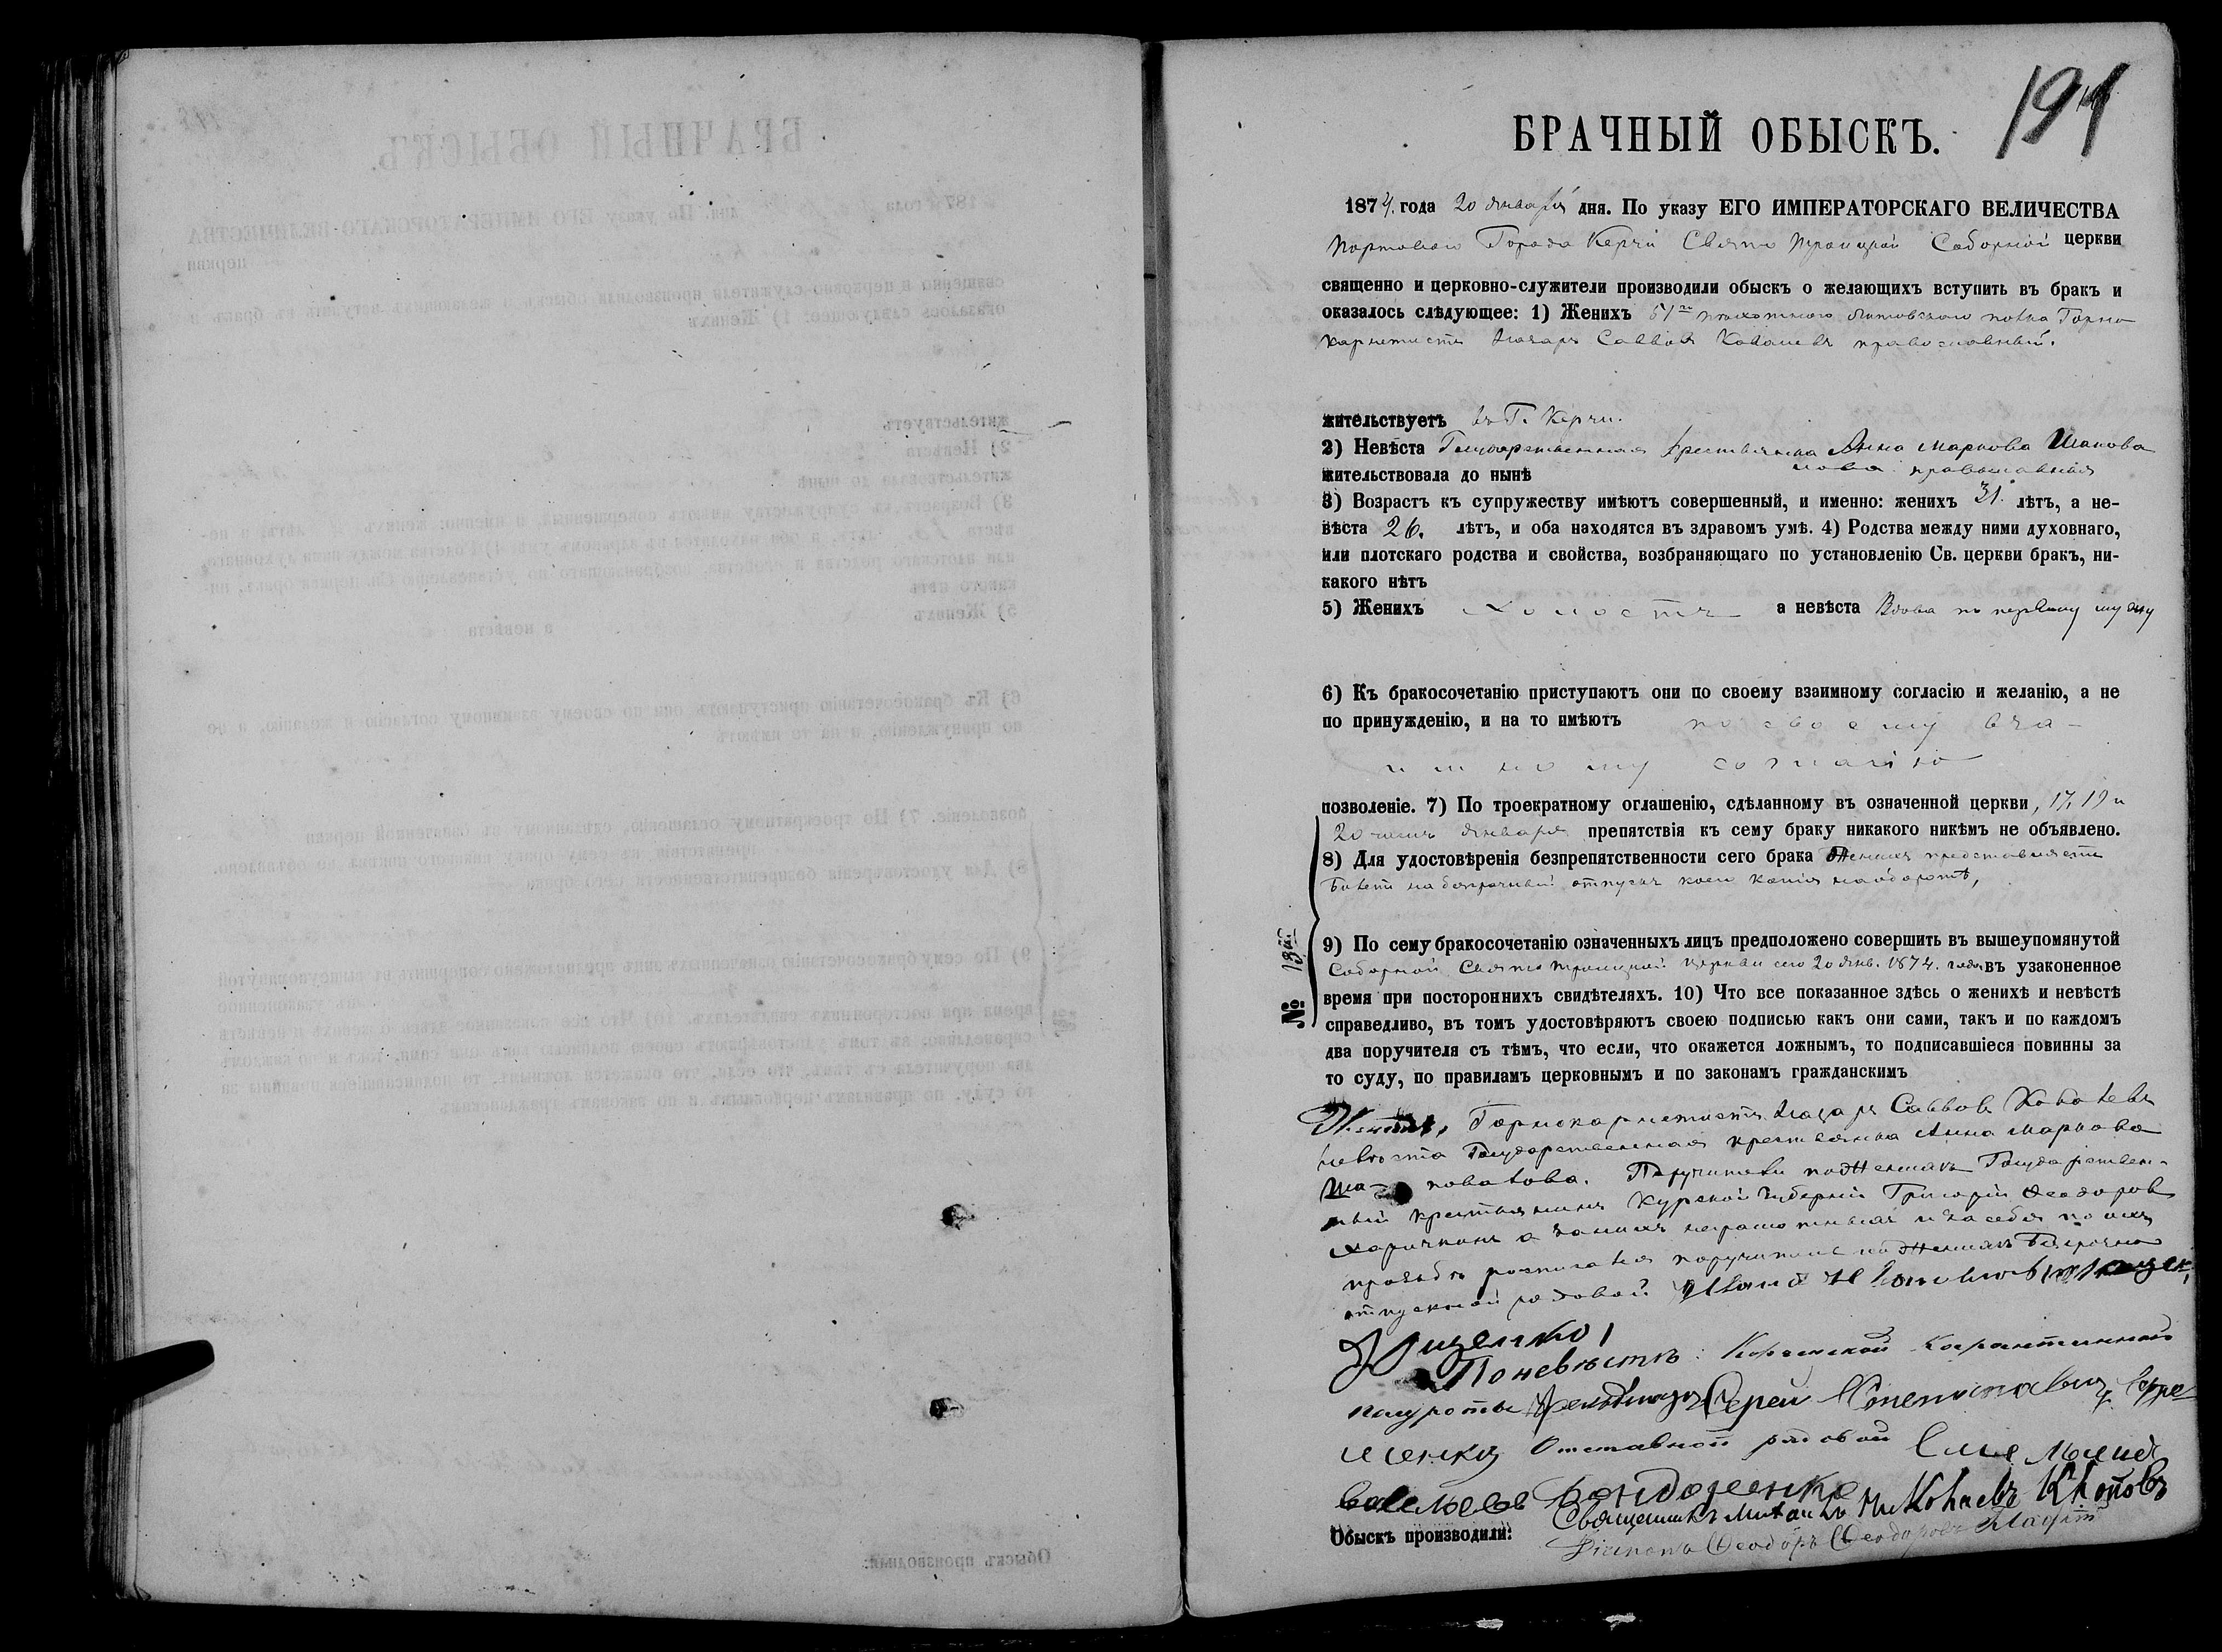 194
БРАЧНЫЙ ОБЫСКЪ.
1874. года 20 Января дня. По указу ЕГО ИМПЕРАТОРСКАГО ВЕЛИЧЕСТВА
Портоваго Города Керчи Свято Троицкой Соборной церкви
священно и церковно-служители производили обыскъ о желающихъ вступить въ бракъ и
оказалось слѣдующее: 1) Женихъ 51го пѣхотнаго Литовскаго полка Горно
Лазарь Саввовъ Ковалевъ православный.
жительствуетъ въ Г. Керчи.
2) Невѣста Государственная крестьянка Анна Маркова Шапова
лова православная
жительствовала до нынѣ
3) Возрастъ къ супружеству имѣютъ совершенный, и именно: женихъ 31. лѣтъ, а не-
вѣста 26. лѣтъ, и оба находятся въ здравомъ умѣ. 4) Родства между ними духовнаго,
или плотскаго родства и свойства, возбраняющаго по установленію Св. церкви бракъ, ни-
какого нѣтъ
5) Женихъ холостъ а невѣста Вдова по первому мужу
6) Къ бракосочетанію приступаютъ они по своему взаимному согласію и желанію, а не
по принужденію, и на то имѣютъ по своему вза-
имному согласію
позволеніе. 7) По троекратному оглашенію, сдѣланному въ означенной церкви, 17, 19 и
20 чиселъ Января препятствія къ сему браку никакого никѣмъ не объявлено.
8) Для удостовѣренія безпрепятственности сего брака Женихъ представляетъ
билетъ на безсрочный отпускъ коего копія наоборотѣ,
№ 13й
9) По сему бракосочетанію означенныхъ лицъ предположено совершить въ вышеупомянутой
Соборной Свято Троицкой церкви сего 20 Янв. 1874. года въ узаконенное
время при постороннихъ свидѣтеляхъ. 10) Что все показанное здѣсь о женихѣ и невѣстѣ
справедливо, въ томъ удостовѣряютъ своею подписью какъ они сами, такъ и по каждомъ
два поручителя съ тѣмъ, что если, что окажется ложнымъ, то подписавшіеся повинны за
то суду, по правиламъ церковнымъ и по законамъ гражданскимъ
Женихъ, Лазарь Саввовъ Ковалевъ
невѣста Государственная крестьянка Анна Маркова
Ша- повалова. Поручители по Женихѣ Государствен-
ный крестьянинъ Курской Губерніи Григорій Феодоровъ
а за нихъ неграмотныхъ и за себя по ихъ
прозьбѣ росписался поручитель по Женихѣ Безсрочно
отпускной рядовой Иванъ
Поневѣстѣ: Керченской Карантинной
полуроты Степановичъ Ефре
менко Отставной рядовой Емельянъ
Савельевъ Бондаренко
Священникъ Михаилъ Николаевъ
Обыскъ производили: Феодоръ Феодоровъ